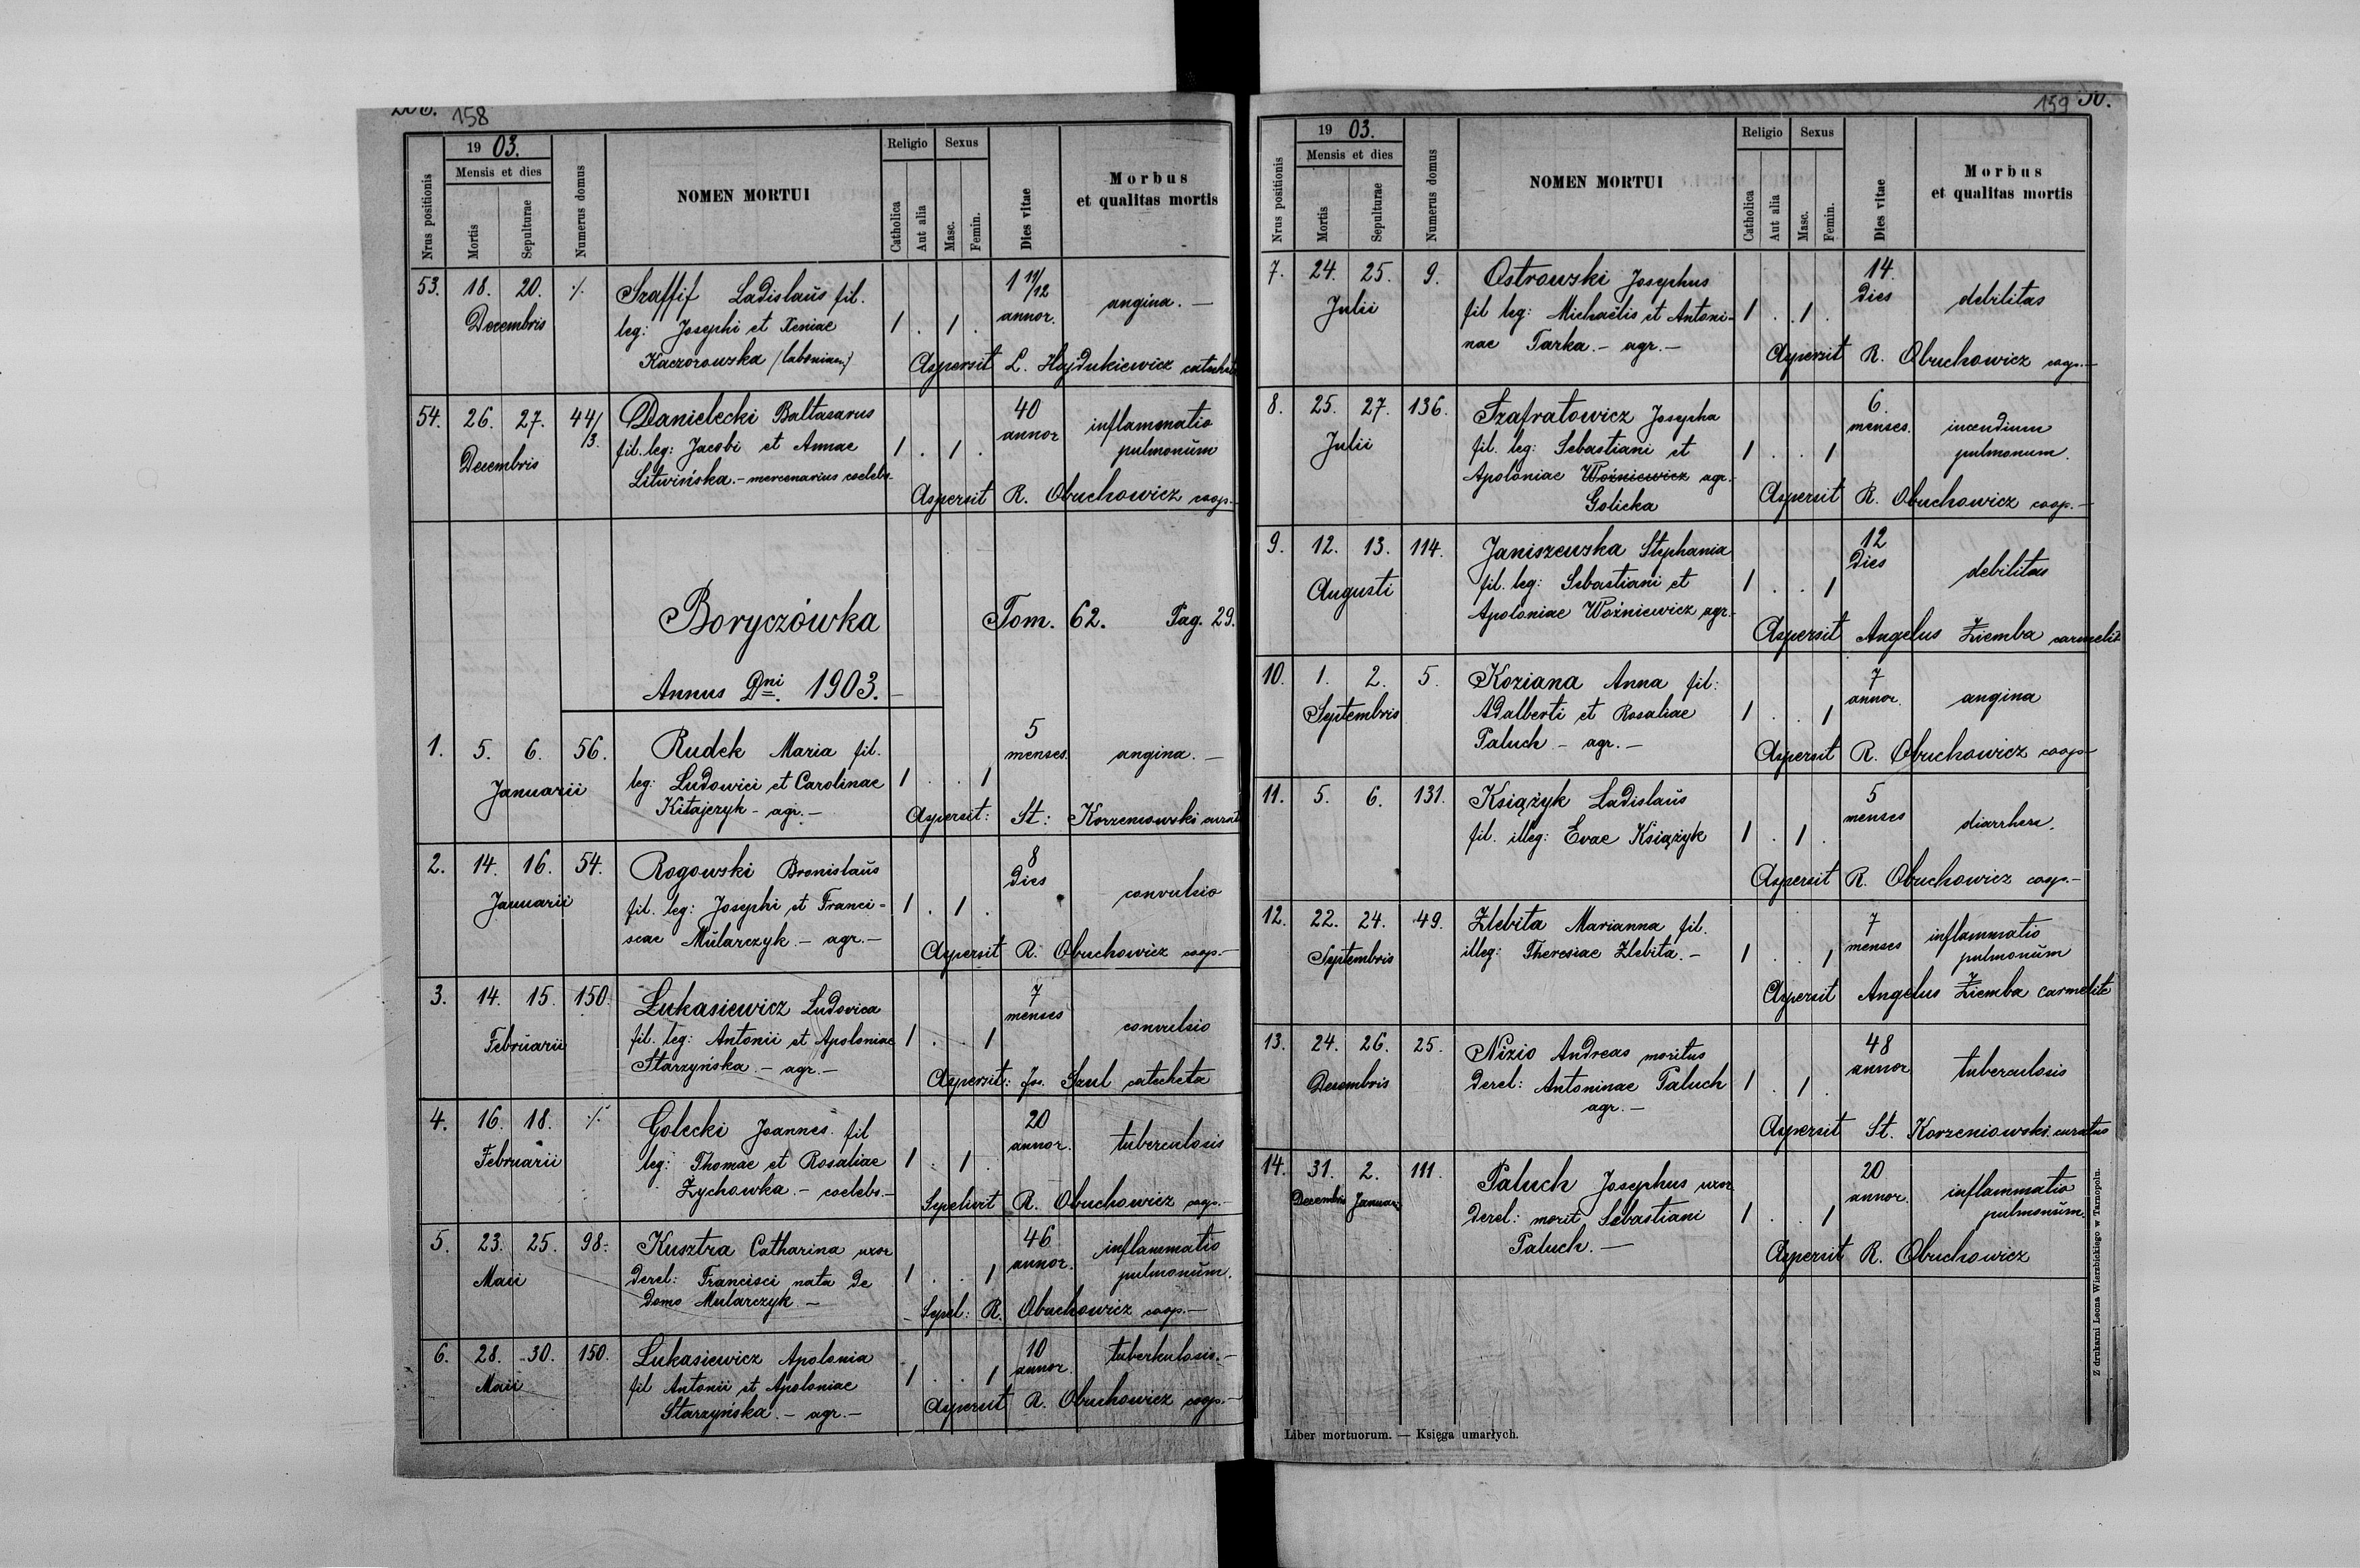 158
19 03.
Nrus positionis
Mensis et dies
Mortis
Sepulturae
Numerus domus
NOMEN MORTUI
Religio
Catholica
Aut alia
Sexus
Masc.
Femin.
Dies vitae
Morbus
et qualitas mortis
53. 18. 20. ./. Szaffif Ladislaŭs fil. 1 11/12
Decembris leg: Josephi et Xeniae 1 . 1 . annor. angina. —
Kaczorowska
Aspersit L. Hajdukiewicz
54. 26. 27. 44/3. Danielecki Baltasarus 40 inflammatio
Decembris fil. leg: Jacobi et Annae 1 . 1 . annor pulmonŭm
Litwińska. – mercenarius coelebs.
Aspersit R. Obuchowicz coop. –
Boryczówka Tom. 62. Pag. 29.
Annus Dni. 1903. –
1. 5. 6. 56. Rudek Maria fil. 5
Januarii leg: Ludowici et Carolinae 1 . . 1 menses. angina. —
Kitajczyk – agr. –
Aspersit: St: Korzeniowski curat
2. 14. 16. 54. Rogowski Bronislaŭs 8
Januarii fil. leg: Josephi et Franci- 1 . 1 . dies convulsio
scae Mŭlarczyk. – agr. –
Aspersit R. Obuchowicz coop. –
3. 14. 15. 150. Łukasiewicz Ludovica 7
Februarii fil. leg: Antonii et Apoloniae 1 . . 1 menses convulsio
Starzyńska. – agr. –
Aspersit: Jos. Saul catecheta
4. 16. 18. ./. Golecki Joannes. fil 20
Februarii leg: Thomae et Rosaliae 1 . 1 . annor. tuberculosis
Żychowka. – coelebs. –
Sepelivit R. Obuchowicz coop. –
5. 23. 25. 98. Kusztra Catharina uxor 46 inflammatio
Maii derel: Francisci nata de 1 . . 1 annor. pulmonŭm.
domo Mularczyk. –
Sepel: R. Obuchowicz coop. –
6. 28. 30. 150. Łukasiewicz Apolonia 10 tuberkulosis. –
Maii fil Antonii et Apoloniae 1 . . 1 annor.
Starzyńska. – agr. –
Aspersit R. Obuchowicz coop. –
159
19 03.
Nrus positionis
Mensis et dies
Mortis
Sepulturae
Numerus domus
NOMEN MORTUI
Religio
Catholica
Aut alia
Sexus
Masc.
Femin.
Dies vitae
Morbus
et qualitas mortis
7. 24. 25. 9. Ostrowski Josephus 14.
Julii fil leg: Michaëlis et Antoni- 1 . 1 . dies debilitas
nae Tarka. – agr. –
Aspersit R. Obuchowicz coop. –
8. 25. 27. 136. Szafratowicz Josepha 6.
Julii fil. leg: Sebastiani et 1 . . 1 menses. incendium
Apoloniae Woźniewicz agr. pulmonum.
Golicka
Aspersit R. Obuchowicz coop. –
9. 12. 13. 114. Janiszewska Stephania 12
Augusti fil. leg: Sebastiani et 1 . . 1 dies debilitas
Apoloniae Woźniewicz agr. –
Aspersit Angelus Ziemba carmelit
10. 1. 2. 5. Koziana Anna fil: 7
Septembris Adalberti et Rosaliae 1 . . 1 annor. angina
Paluch – agr. –
Aspersit R. Obuchowicz coop –
11. 5. 6. 131. Książyk Ladislaŭs 5
fil. illeg: Evae Książyk 1 . 1 . menses diarrhea.
Aspersit R. Obuchowicz coop. –
12. 22. 24. 49. Zlebita Marianna fil. 7 inflammatio
Septembris illeg: Theresiae Zlebita. – 1 . . 1 menses pulmonŭm
Aspersit Angelus Ziemba carmelite
13. 24. 26. 25. Nizio Andreas moritus 48
Decembris derel: Antoninae Paluch 1 . 1 . annor tuberculosis
agr. –
Aspersit St. Korzeniowski curatus
14. 31. 2. 111. Paluch Josephus uxor 20 inflammatio
Decembris Januarii derel: morit Sebastiani 1 . . 1 annor. pulmonŭm.
Paluch. –
Aspersit R. Obuchowicz
Liber mortuorum. — Księga umarłych.
Z drukarni Leona Wierzbickiego w Tarnopolu.